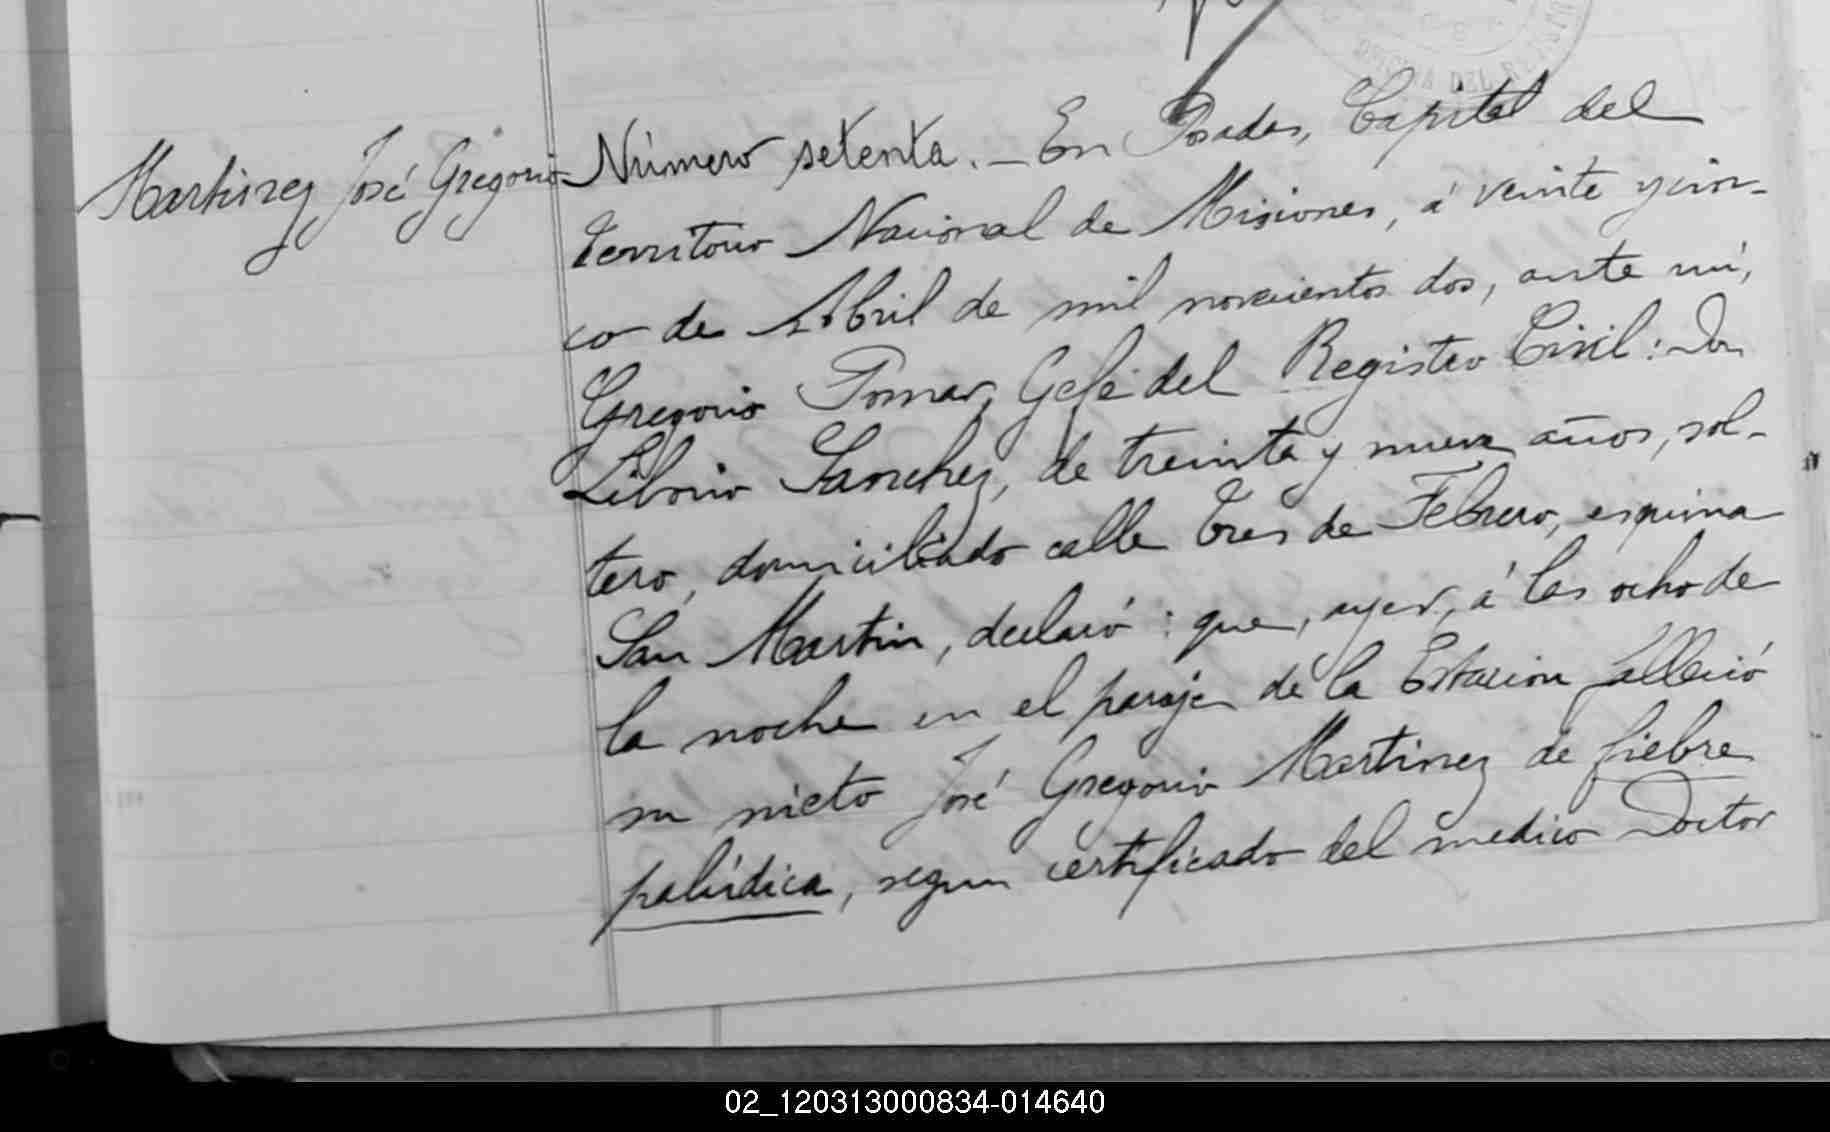 Martinez José Gregorio
Número setenta. - En Posadas, Capital del
Territorio Nacional de Misiones, á veinte y cin-
co de Abril de mil novecientos dos, ante mí,
Gregorio Pomar, Gefe del Registro Civil: Don
Liborio Sanchez, de treinta y nueve años, sol-
tero, domiciliado calle Tres de Febrero, esquina
San Martin, declaró: que, ayer, á las ocho de
la noche en el paraje de la Estacion falleció
su nieto José Gregorio Martinez de fiebre
palúdica, segun certificado del medico Doctor
02_120313000834-014640